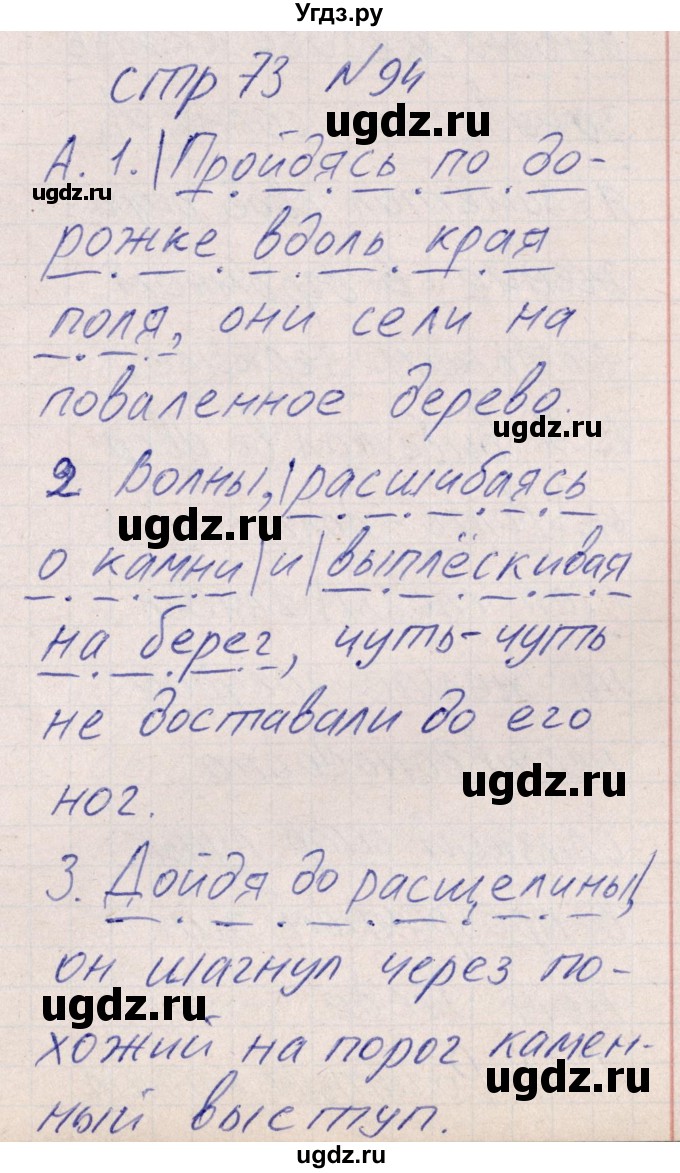 Угдз.ру
стр 73 №94
ugdz.ru
А. 1. |Пройдясь по до-
рожке вдоль края
ugdz.ru
поля, они сели на
поваленное дерево.
ugdz.ru
2 Волны,|расшибаясь
ugdz.ru
о камни|и|выплёскивая
на берег, чуть-чуть
не доставали до его
ugdz.ru
ног.
3. Дойдя до расщелины,|
он шагнул через по-
ugdz.ru
хожий на порог камен-
ugdz.ru
ный выступ.
ugdz.ru